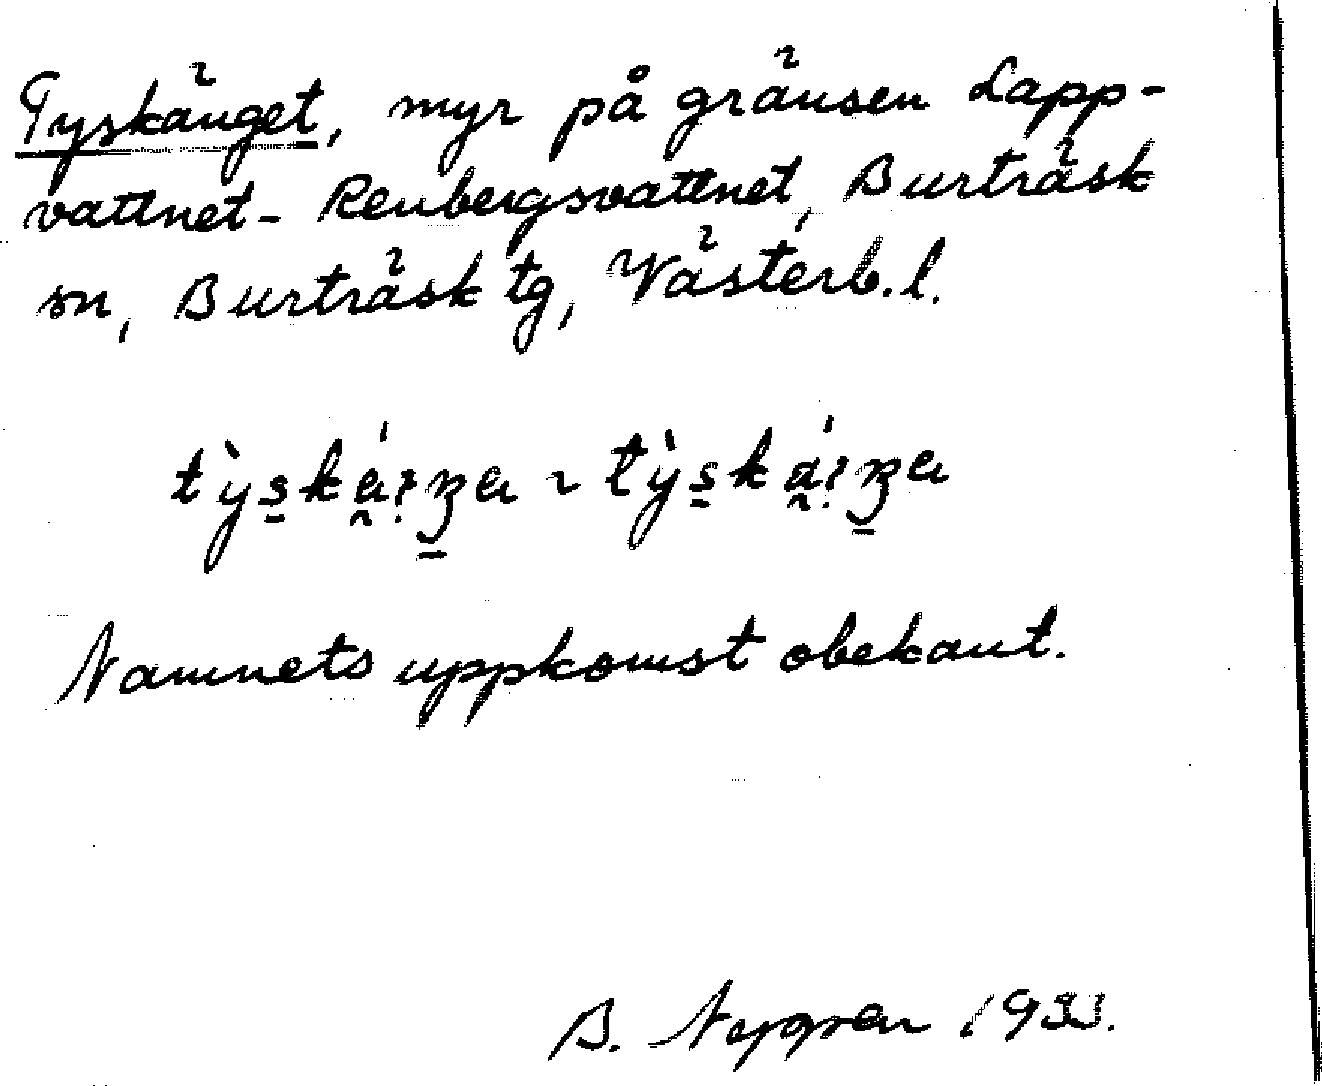 Tyskänget, myr på gränsen Lapp-
vattnet - Renbergsvattnet, Burträsk
sn, Burträsk tg, Västerb. l.
Namnets uppkomst obekant.
B. Nygren 1933.